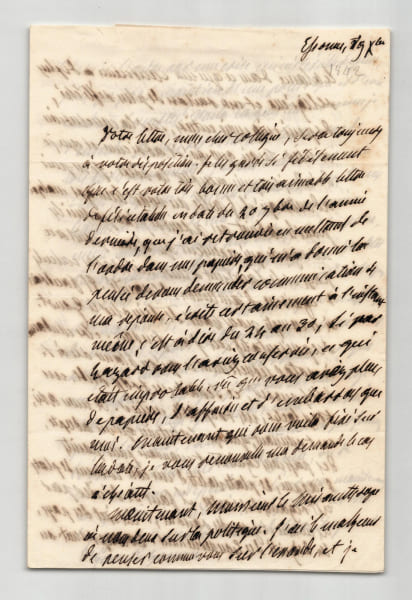 Essonne, 19 Xbre
1842
Votre lettre, mon cher collègue, sera toujours
à votre disposition. Je la garde si fidèlement
que c'est votre très bonne et très aimable lettre
de félicitation en date du 20 9bre de l'année
dernière, que j'ai retrouvée en mettant de
l'ordre dans mes papiers, qui m'a donné la
pensée de vous demander communication de
ma réponse, écrite certainement à l'instant
même, c'est à dire du 24 au 30, si par
hazard vous l'aviez conservée, ce qui
était improbable, vu que vous avez plus
de papiers, d'affaires et d'embarras que
moi. Maintenant que vous voilà fixé sur
, je vous renouvelle ma demande le cas
échéant.
Maintenant, Monsieur le
à nous deux sur la politique. J'ai le malheur
de penser comme vous sur , et je